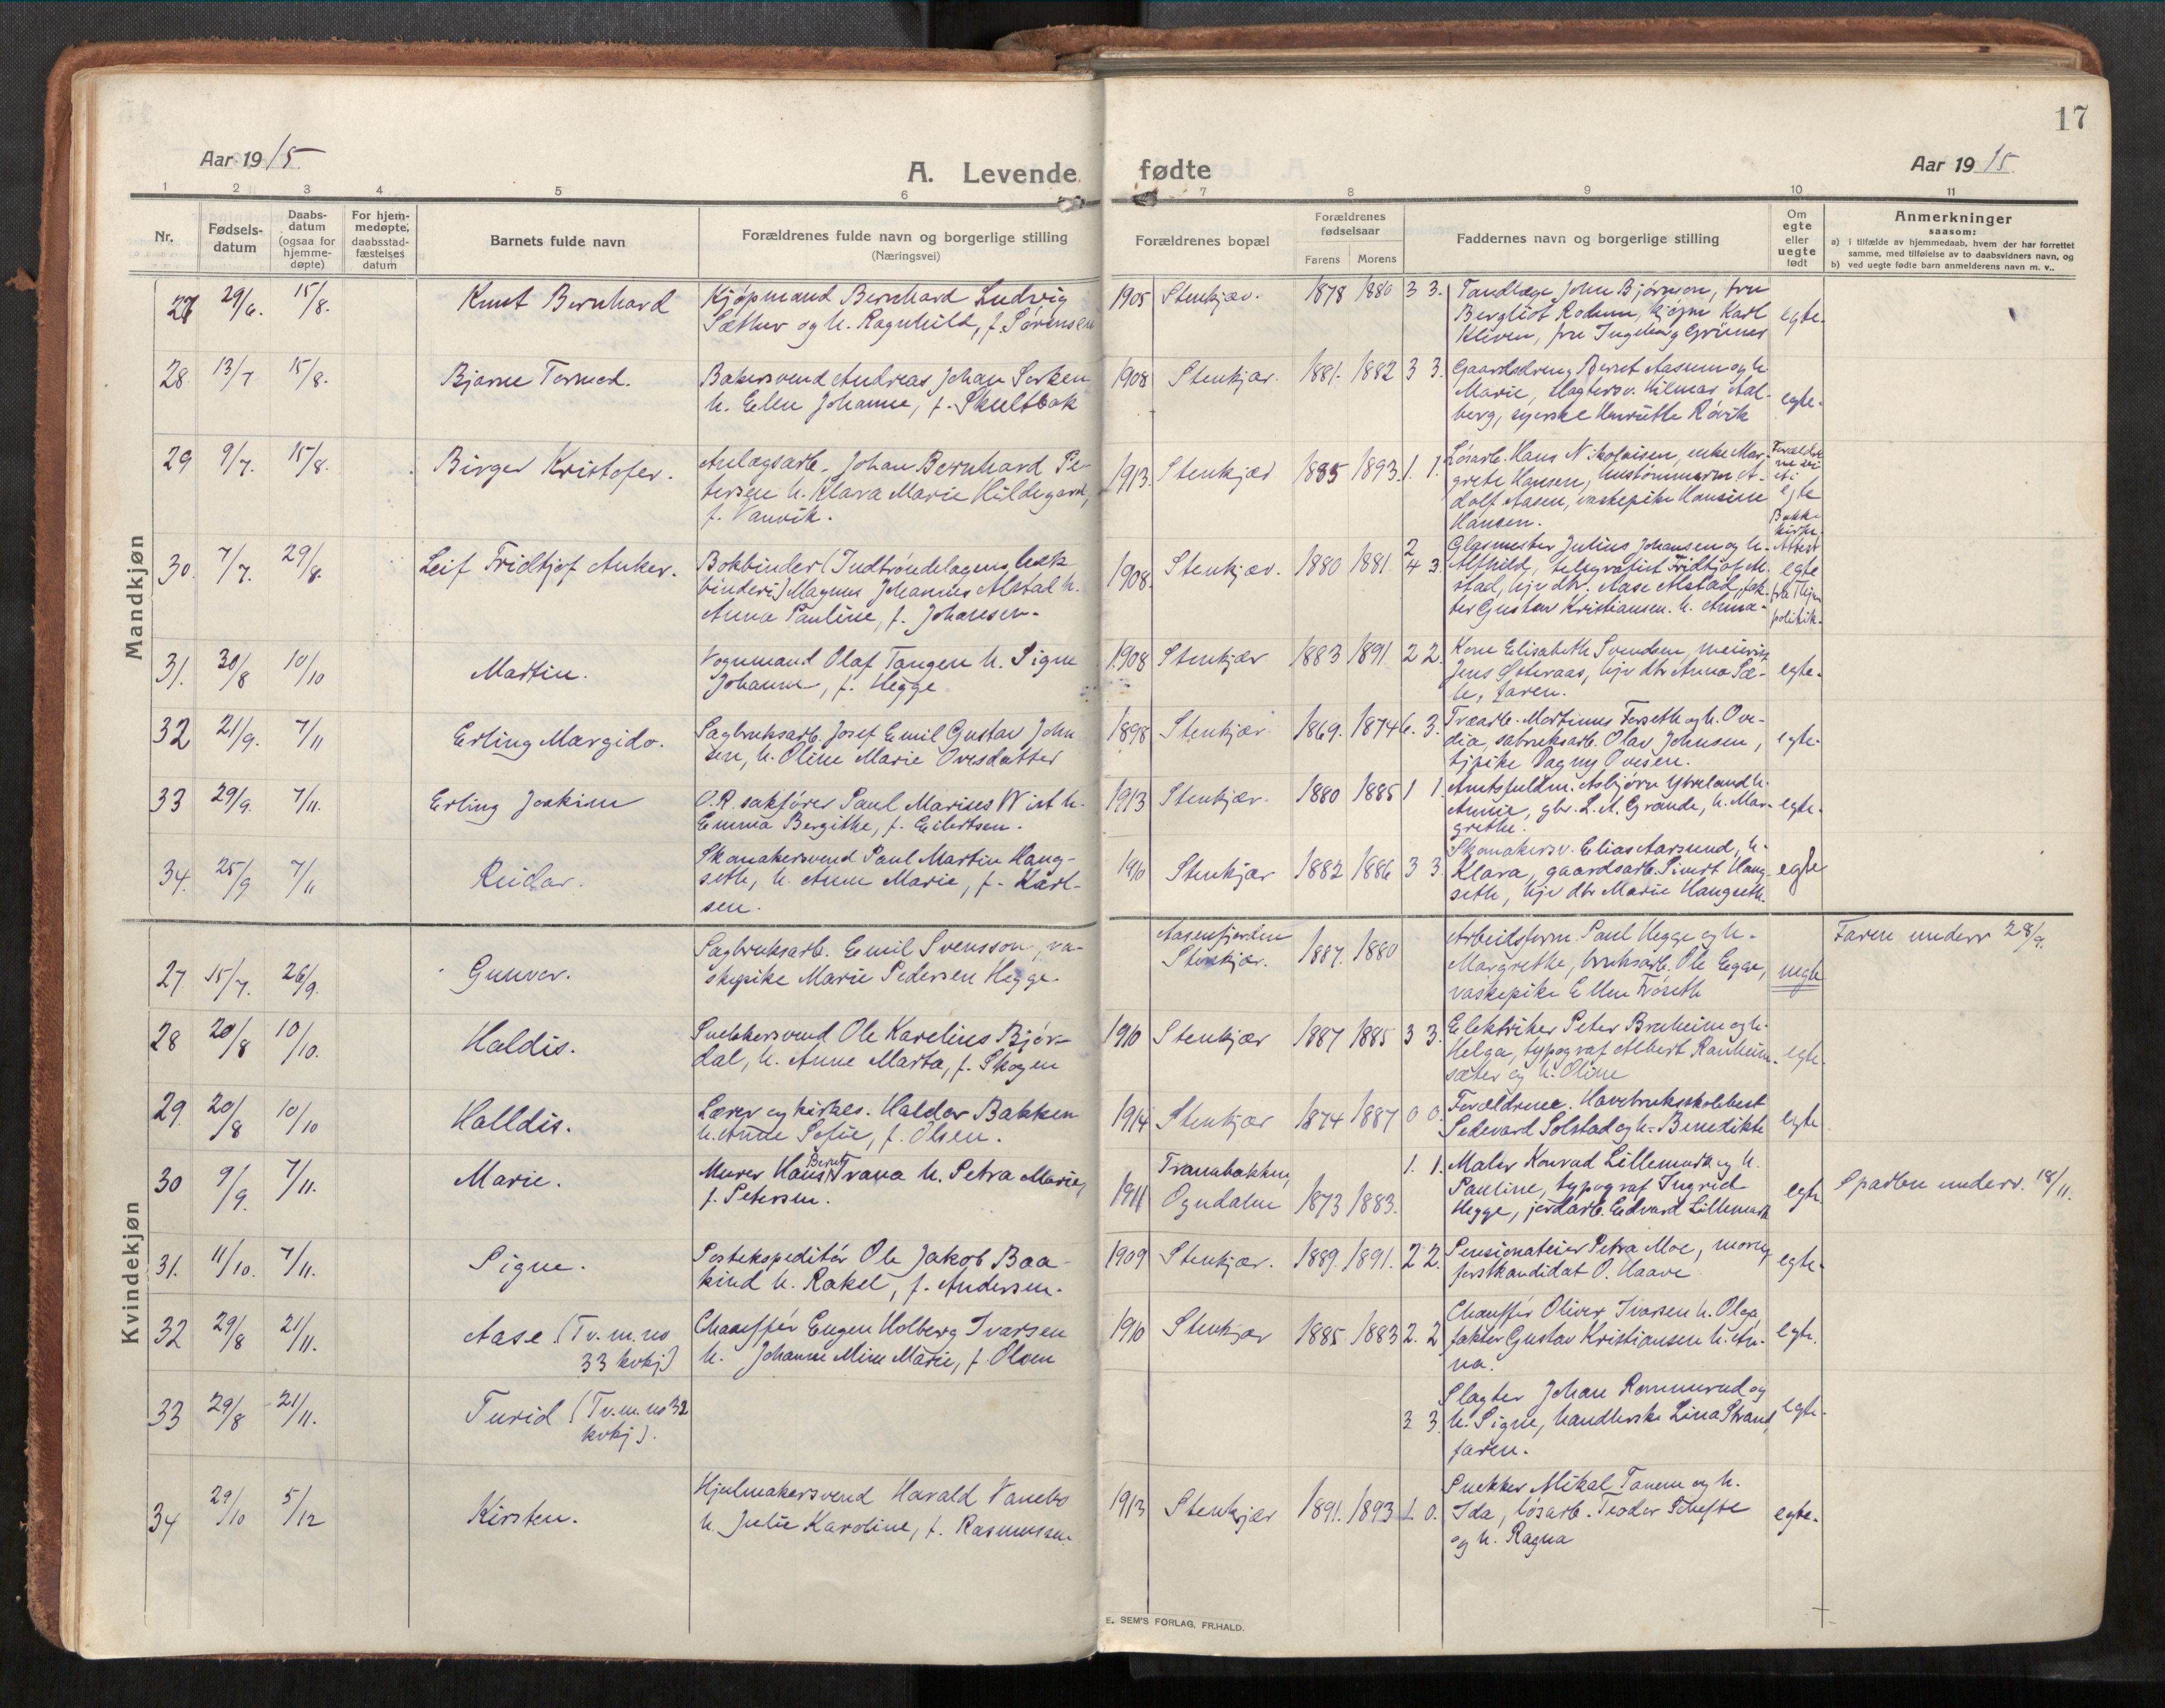 17
Aar 1915
A. Levende fødte
Aar 1915
1 2 3 4 5 6 7 8 9 10 11
Nr.
Fødsels-
datum
Daabs-
datum
(ogsaa for
hjemme-
døpte)
For hjem-
medøpte,
daabsstad-
fæstelses
datum
Barnets fulde navn
Forældrenes fulde navn og borgerlige stilling
(Næringsvei)
Forældrenes bopæl
Forældrenes
fødselsaar
Farens Morens
Faddernes navn og borgerlige stilling
Om
egte
eller
uegte
født
Anmerkninger
saasom:
a) i tilfælde av hjemmedaab, hvem der har forrettet
samme, med tilføielse av to daabsvidners navn, og
b) ved uegte fødte barn anmelderens navn m. v..
Mandkjøn
27 29/6. 15/8. Knut Bernhard
Kjøpmand Bernhard Ludvig
Sæther og h. Ragnhild, f. Sørensen
1905 Stenkjær. 1878 1880 3 3.
Tandlæge John Bjørnson, fru
Bergliot Rodum, kjøpm Karl
Kliven, fru Ingeborg Grünes
egte.
28. 13/7 15/8. Bjarne Tormod.
Bakersvend Andreas Johan Serken
h. Ellen Johanne, f. Skultbak
1908 Stenkjær. 1881. 1882 3 3.
Gaardsdreng Bernt Aasum og h.
Marie, slagtersv. Hilmar Aal-
berg, syerske Henriette Røvik
egte.
29 9/7. 15/8. Birger Kristofer.
Anlægsarb. Johan Bernhard Pe-
tersen h. Klara Marie Hildegard,
f. Vanvik.
1913. Stenkjær 1885 1893. 1. 1.
Løsarb. Hans Nikolaisen, enke Mar-
grete Hansen, hustømmerm A-
dolf Aasen, vaskepike Hansine
Hansen.
egte
30. 7/7. 29/8. Leif Fridtjof Anker.
Bokbinder (Indtrøndelagens bok
binderi) Magnus Johannes Alstad h.
Anna Pauline, f. Johansen.
1908. Stenkjær. 1880 1881. 2
4 3.
Glasmester Julius Johansen og h.
Alfhild, telegrafist Fridtjof Al-
stad, hjv dtr. Aase Alstad, fak-
tor Gustav Kristiansen. h. Anna.
egte
31. 30/8 10/10 Martin.
Vognmand Olaf Tangen h. Signe
Johanne, f. Hegge
1908 Stenkjær 1883 1891. 2 2.
Kone Elisabeth Svendsen, meierist
Jens Østeraas, hjv dtr Anna Sæ-
le, faren.
egte.
32 21/9. 7/11 Erling Margido.
Sagbruksarb. Josef Emil Gustav John
sen, h. Oline Marie Ovesdatter
1898 Stenkjær 1869. 1874 6. 3.
Træarb. Martinus Forseth og h. Ove-
dia, sabruksarb. Olav Johnsen,
tjpike Dagny Ovesen.
egte.
33 29/9. 7/11. Erling Joakim
O.R. sakfører Paul Marius Wist h.
Emma Bergithe, f. Eilertsen.
1913 Stenkjær. 1880 1885 1 1.
Amtsfuldm. Asbjørn Ytreland h.
Annie, gbr. L. A. Grande, h. Mar-
grethe.
egte.
34. 25/9 7/11 Reidar.
Skomakersvend Paul Martin Haug-
seth, h. Anne Marie, f. Karl-
sen.
1910 Stenkjær 1882 1886 3 3.
Skomakersv. Elias Aarsund, h.
Klara, gaardsarb. Sivert Haug-
seth, hjv dtr Marie Haugseth.
egte
Kvindekjøn
27. 15/7. 26/9. Gunvor.
Sagbruksarb. Emil Svensson, va-
skepike Marie Pedersen Hegge.
Aasenfjorden
Stenkjær. 1887. 1880
Arbeidsform. Paul Hegge og h.
Margrethe, bruksarb. Ole Egge,
vaskepike Ellen Frøseth
uegte
Faren underr 28/9.
28 20/8 10/10. Haldis.
Snekkersvend Ole Karelius Bjør-
dal, h. Anne Marta, f. Skogen
1910 Stenkjær 1887 1885 3 3.
Elektriker Peter Bruheim og h.
Helga, typograf Albert Ranheim-
sæter og h. Oline
egte.
29. 20/8 10/10 Halldis.
Lærer og kirkes. Haldor Bakken
h. Anne Sofie, f. Olsen.
1914 Stenkjær 1874 1887 0 0.
Forældrene. Havebruksskolebest
Sedevard Solstad og h. Benedikte
egte
30 9/9. 7/11. Marie.
Murer Hans Bernt Trana h. Petra Marie,
f. Petersen.
1911 Tranabakken,
Ogndalen 1873 1883. 1. 1.
Maler Konrad Lillemark og h.
Pauline, typograf Ingrid
Hegge, jordarb. Edvard Lillemark
egte
Sparbu underr. 18/11.
31. 11/10. 7/11. Signe.
Postekspeditør Ole Jakob Baa-
kind h. Rakel, f. Andersen.
1909 Stenkjær. 1889. 1891. 2 2.
Pensionateier Petra Moe, moren,
forstkandidat O. Haave
egte.
32 29/8 21/11. Aase (Tv. m. no
33 kvkj)
Chauffør Eugen Holberg Ivarsen
h. Johanne Mine Marie, f. Olsen
1910 Stenkjær 1885 1883 2. 2
Chauffør Oliver Ivarsen h. Olga,
faktor Gustav Kristiansen h. An-
na.
egte.
33 29/8 21/11. Turid (Tv. m. no 32
kvkj).
3 3.
Slagter Johan Rommerud og
h. Signe, handlerske Lina Strand,
faren.
egte.
34 29/10 5/12 Kirsten.
Hjulmakersvend Harald Vanebo
h. Julie Karoline, f. Rasmussen
1913 Stenkjær 1891. 1893 1. 0.
Snekker Mikal Tanem og h.
Ida, løsarb. Teodor Schefte
og h. Ragna
egte.
E. SEM'S FORLAG, FR.HALD.